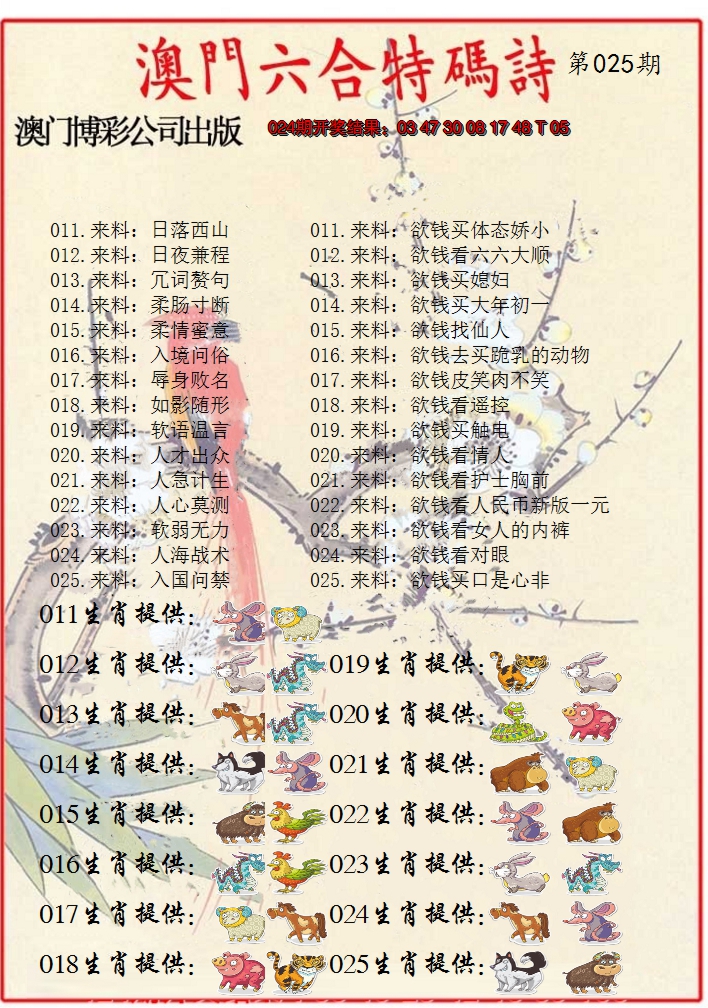 澳門六合特碼詩 第025期
澳门博彩公司出版 024期开奖结果：03 47 30 08 17 48 T 05
011.来料：日落西山 011.来料：欲钱买体态娇小
012.来料：日夜兼程 012.来料：欲钱看六六大顺
013.来料：冗词赘句 013.来料：欲钱买媳妇
014.来料：柔肠寸断 014.来料：欲钱买大年初一
015.来料：柔情蜜意 015.来料：欲钱找仙人
016.来料：入境问俗 016.来料：欲钱去买跪乳的动物
017.来料：辱身败名 017.来料：欲钱皮笑肉不笑
018.来料：如影随形 018.来料：欲钱看遥控
019.来料：软语温言 019.来料：欲钱买触电
020.来料：人才出众 020.来料：欲钱看情人
021.来料：人急计生 021.来料：欲钱看护士胸前
022.来料：人心莫测 022.来料：欲钱看人民币新版一元
023.来料：软弱无力 023.来料：欲钱看女人的内裤
024.来料：人海战术 024.来料：欲钱看对眼
025.来料：入国问禁 025.来料：欲钱买口是心非
011生肖提供：
012生肖提供： 019生肖提供：
013生肖提供： 020生肖提供：
014生肖提供： 021生肖提供：
015生肖提供： 022生肖提供：
016生肖提供： 023生肖提供：
017生肖提供： 024生肖提供：
018生肖提供： 025生肖提供：